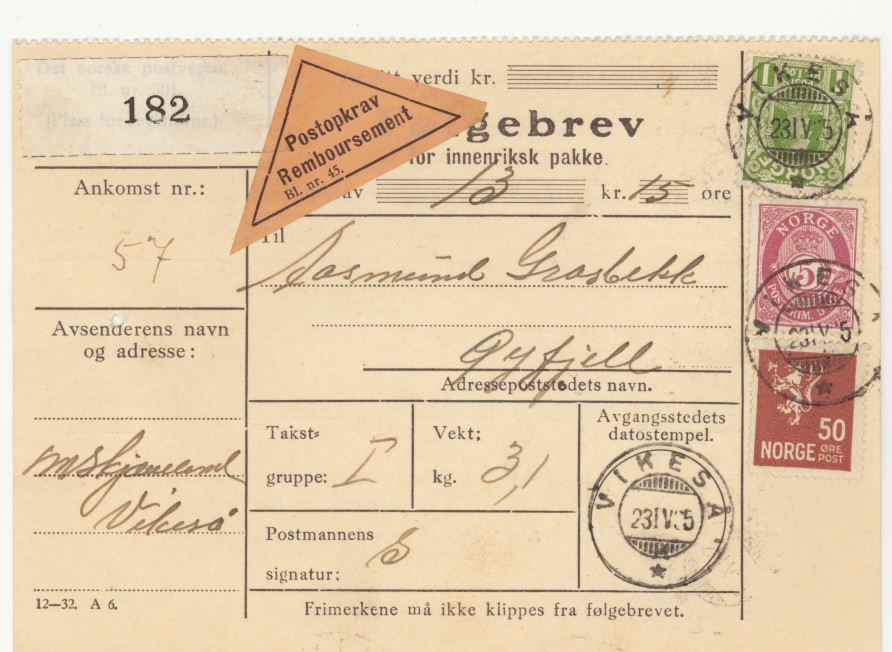 Det norske postvesen.
Bl. nr. 301.
182
verdi kr.
Postopkrav
Remboursement
Bl. nr. 45.
gebrev
for innenriksk pakke.
13 kr. 15 øre
Ankomst nr.:
57
Til
Aasmund Grosbekk
Øyfjell
Adressepoststedets navn.
Avsenderens navn
og adresse:
Vikeså
Takst=
gruppe: I
Vekt;
kg. 3,1
Avgangsstedets
datostempel.
VIKESÅ
23 IV 35
Postmannens
signatur:
12—32. A 6.
Frimerkene må ikke klippes fra følgebrevet.
1
NORGE
VIKESÅ
23 IV 35
NORGE
5
VIKESÅ
23 IV 35
50
NORGE ØRE
POST